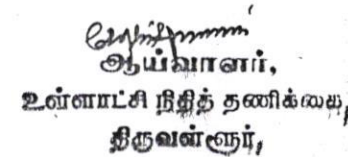 ஆய்வாளர்,
உள்ளாட்சி நிதித் தணிக்கை,
திருவள்ளூர்,